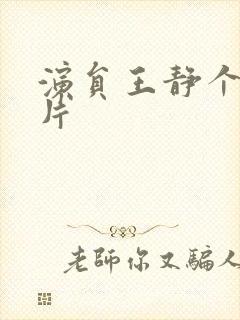 演員王静个
片
老師你又騙人